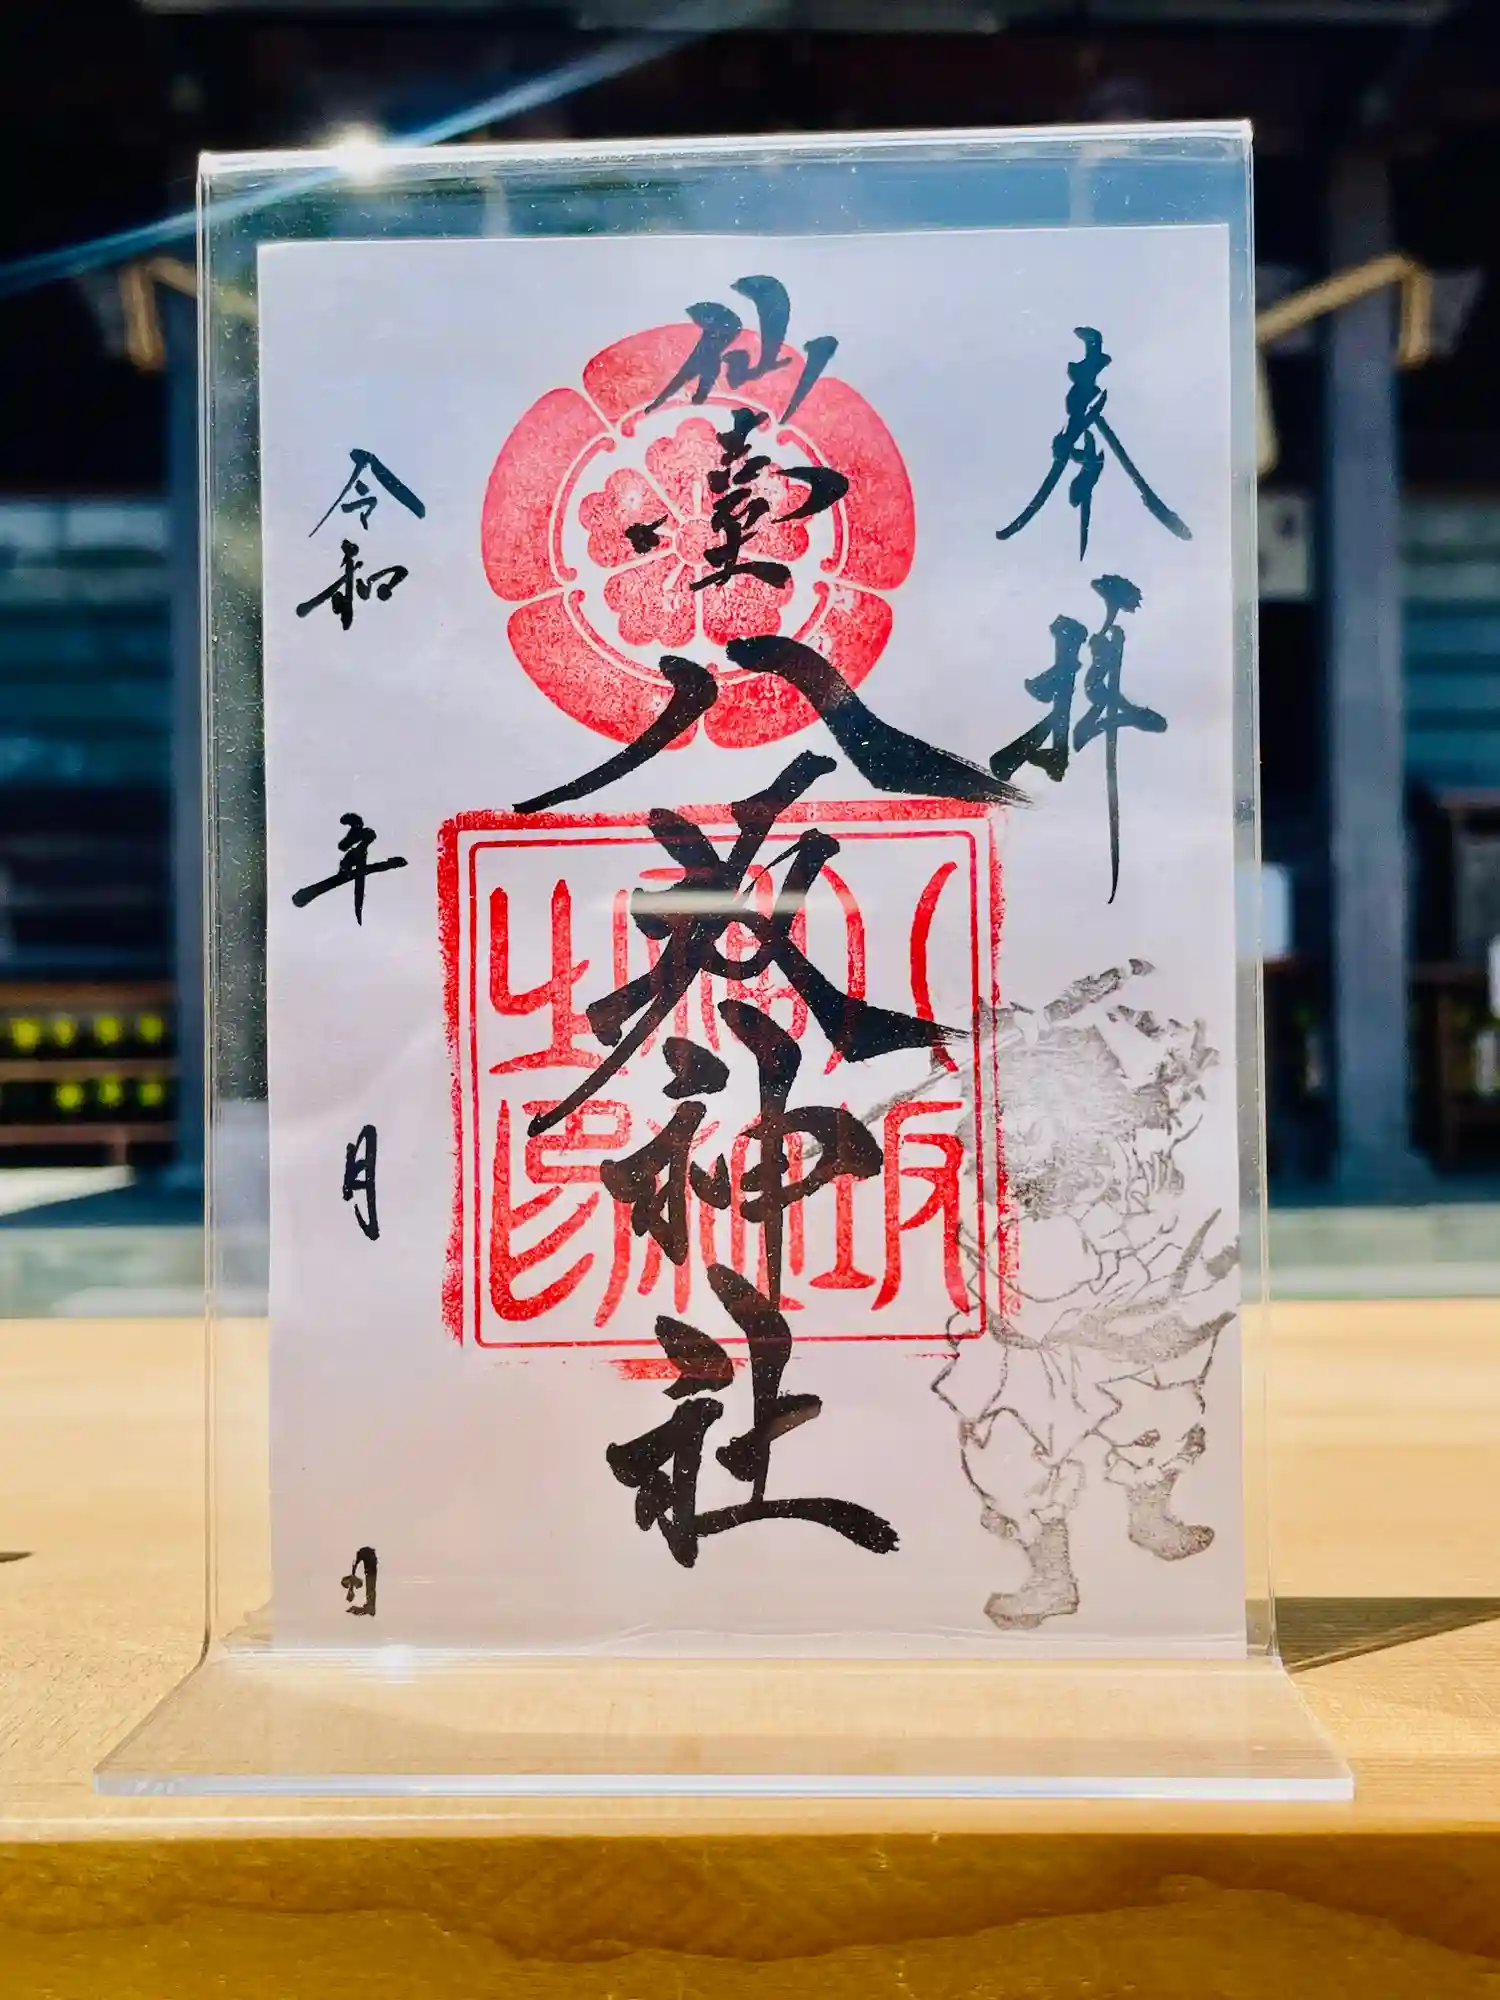 奉拝
仙臺
八坂神社
八坂神社之印
令和 年 月 日